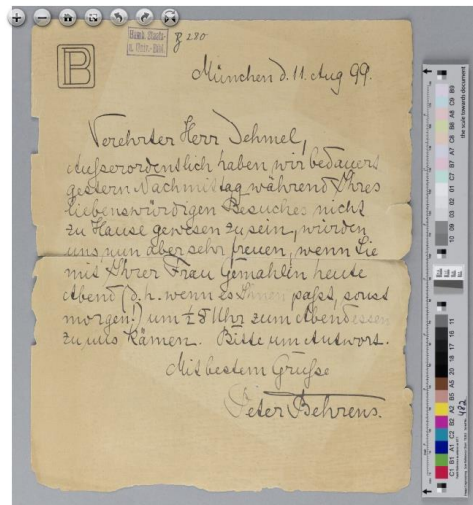 B
Hamb. Staats-
u. Univ.-Bibl.
B 280
München d. 11. Aug 99.
Verehrter Herr Dehmel,
Aufserordentlich haben wir bedauert
gestern Nachmittag während Ihres
liebenswürdigen Besuches nicht
zu Hause gewesen zu sein, würden
uns nun aber sehr freuen, wenn Sie
mit Ihrer Frau Gemahlin heute
Abend (d. h. wenn es Ihnen pafst, sonst
morgen!) um ½ 8 Uhr zum Abendessen
zu uns kämen. Bitte um Antwort.
Mit bestem Grufse
Peter Behrens.
the scale towards document